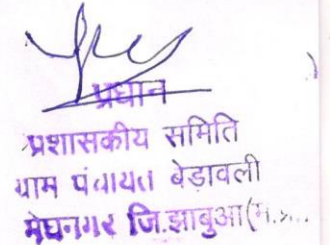 प्रधान
प्रशासकीय समिति
ग्राम पंचायत बेड़ावली
मेघनगर जि.झाबुआ(म.